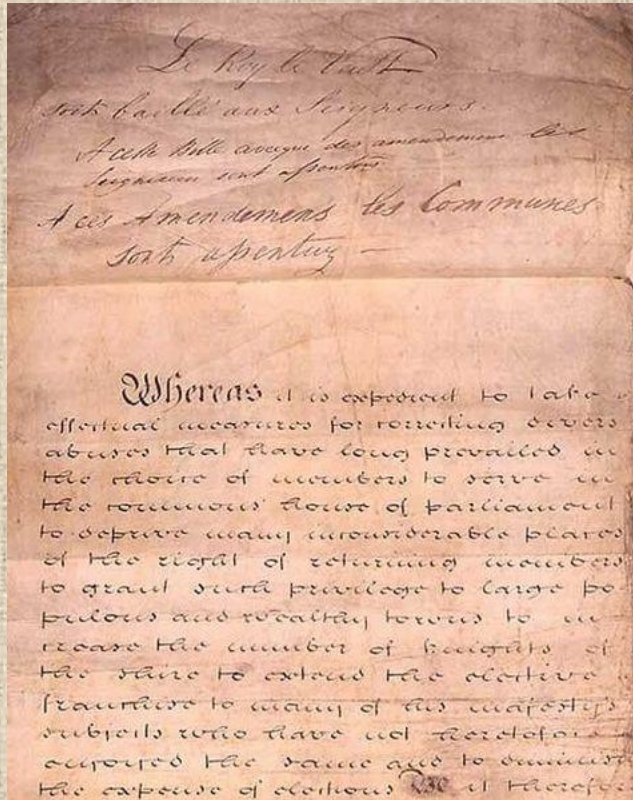 Le Roy le Veult
soit baillé aux Seigneurs.
A cette Bille avecque des amendemens les
Seigneurs sont assentus
A ces Amendemens les Communes
sont assentuz
Whereas it is expedient to take
effectual measures for correcting divers
abuses that have long prevailed in
the choice of members to serve in
the commons house of parliament
to deprive many inconsiderable places
of the right of returning members
to grant such privilege to large po
pulous and wealthy towns to in
crease the number of knights of
the shire to extend the elective
franchise to many of his majesty's
subjects who have not heretofore
enjoyed the same and to diminish
the expense of elections Be it therefore